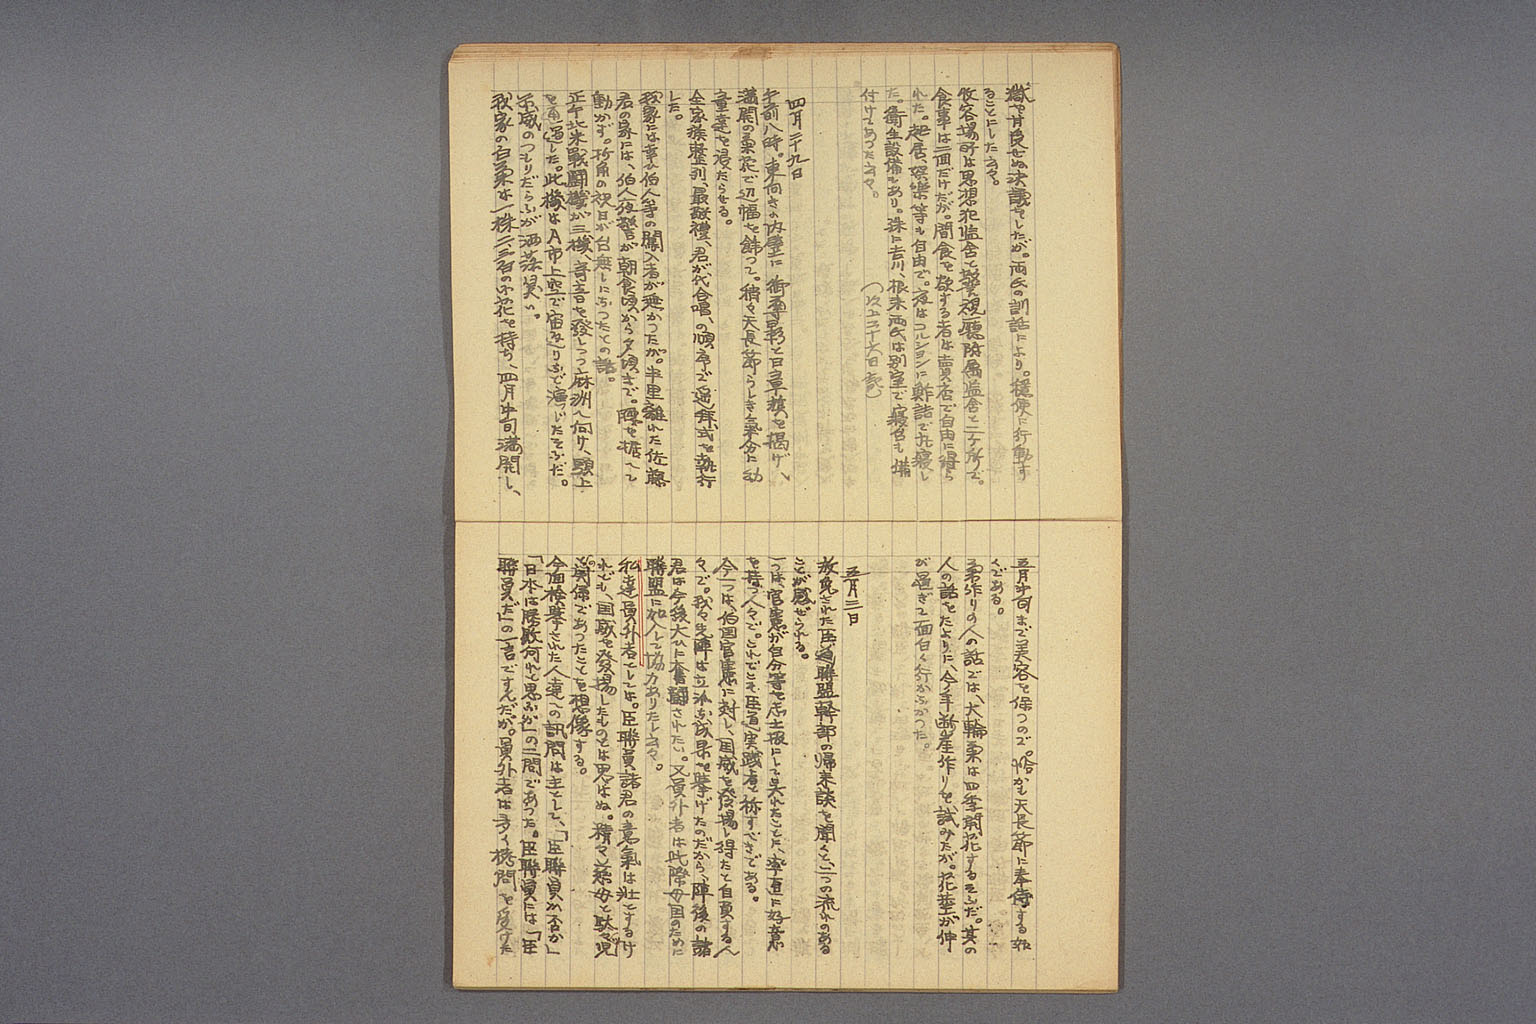 獄も甘受せぬ決議をしたが。両氏の訓話により。穏便に行動す
ることにした云々。
収容場所は思想犯監舎と警視廳附属監舎と二ケ所で。
食事は二回だけだが。間食を欲する者は賣店で自由に得ら
れた。起居、娯樂等も自由で。夜はコルションに鮓詰で丸寢し
た。衛生設備もあり。殊に吉川、根来両氏は別室で寢台も備
付けてあった云々。
四月二十九日
午前八時。東向きの内壁に御尊影と日章旗を掲げ、
満開の菊花で辺幅を飾って。稍々天長節らしき氣分に幼
童達を浸たらせる。
全家族整列、最敬禮、君が代合唱、の順序で遥拝式を執行
した。
我家には幸ひ伯人等の闖入者が無かったが。半里離れた佐藤
君の家には、伯人夜警が朝食頃から夕頃まで。腰を据へて
動かず。折角の祝日が台無しになったとの話。
正午北米戰闘機が三機、音を發しつつ麻洲へ向け、頭上
を通過した。此機はA市上空で宙返りまで演じたそふだ。
示威のつもりだらふが洒落臭い。
我家の白菊は一株二、三百の花を持ち、四月中旬満開し、
五月中旬まで美容を保つので。恰かも天長節に奉侍する如
くである。
菊作りの人の話では、大輪菊は四季開花するそふだ。其の
人の話をたよりに、今年断崖作りを試みたが。花莖が伸
が過ぎて面白く行かなかった。
五月三日
放免された臣道聯盟幹部の帰来談を聞くと、二つの流れのある
ことが感ぜられる。
一つは、官憲が自分等を志士扱にして呉れたことに、率直に好意
を持つ人々で。これでこそ臣道実践者と称すべきである。
今一つは、伯国官憲に対し、国威を発揚し得たと自負する人
々で。我々先陣は立派な效果を挙げたのだから、陣後の諸
君は今後大ひに奮闘されたい。又員外者は此際母国のために
聯盟に加入して協力ありたし云々。
私達員外者としては。臣聯員諸君の意氣は壮とするけ
れども、国威を發揚したものとは思はぬ。精々慈母と駄々児
の関係であったことを想像する。
今回検挙された人達への訊問は主として、「臣聯員か否か」
「日本は勝敗何れと思ふか」の二問であった。臣聯員には「臣
聯員だ」の一言ですんだが。員外者は多く拷問を受けた